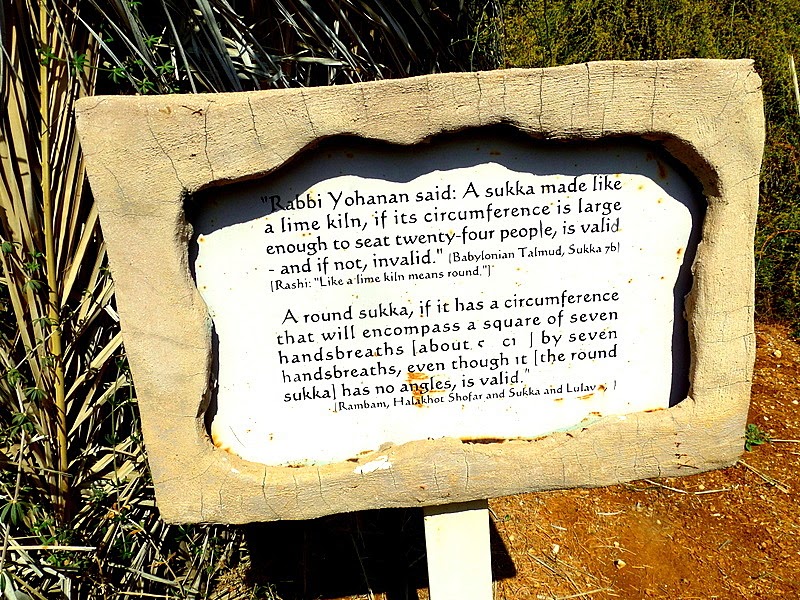 "Rabbi Yohanan said: A sukka made like
a lime kiln, if its circumference is large
enough to seat twenty-four people, is valid
- and if not, invalid." (Babylonian Talmud, Sukka 7b)
[Rashi: "Like a lime kiln means round."]
A round sukka, if it has a circumference
that will encompass a square of seven
handsbreaths [about ] by seven
handsbreaths, even though it [the round
sukka] has no angles, is valid."
[Rambam, Halakhot Shofar and Sukka and Lulav ]